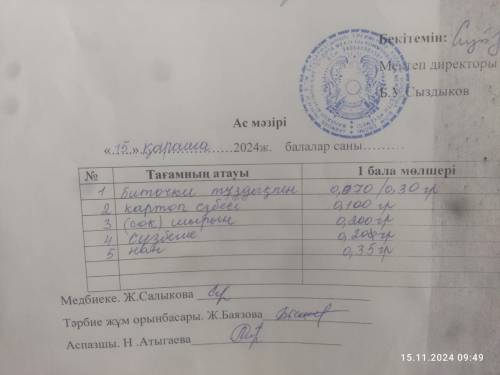 Бекітемін:
Мектеп директоры
Б.У.Сыздыков
Ас мәзірі
«15» қараша 2024ж. балалар саны
№ Тағамның атауы 1 бала мөлшері
1 Биточки тұздықпен 0,070/0,30 гр
2 картоп езбесі 0,100 гр
3 (сок) шырын 0,200 гр
4 Сүзбеше 0,200 гр
5 нан 0,35 гр
Медбиеке. Ж.Салыкова
Тәрбие жұм орынбасары. Ж.Баязова
Аспазшы. Н .Атыгаева
15.11.2024 09:49